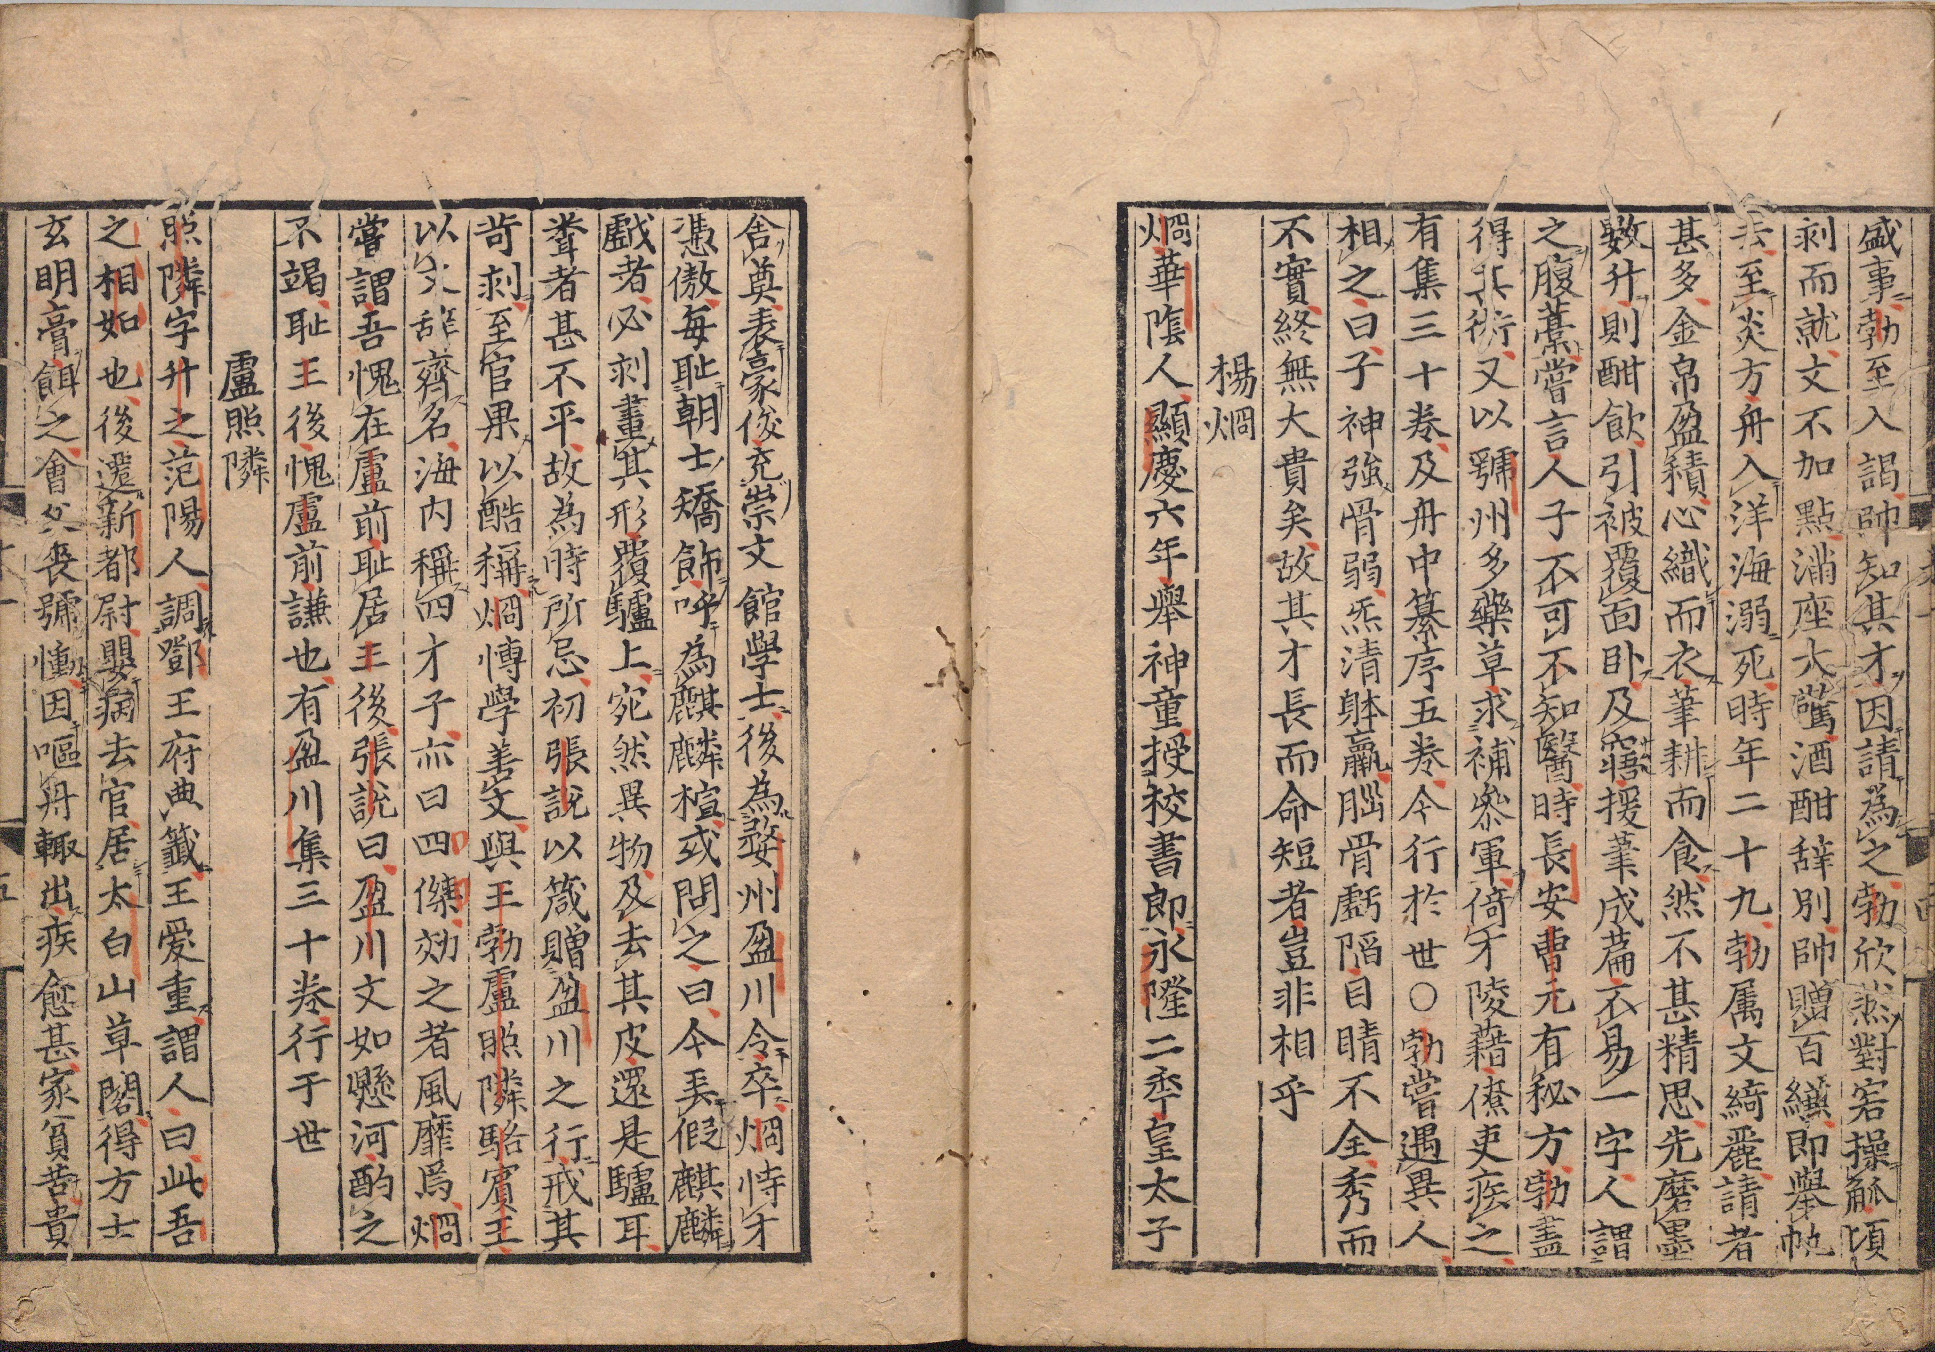 盛事勃至入謁帥知其才因請為之勃欣然對客操觚頃
刻而就文不加點滿座大驚酒酣辭別帥贈百縑即舉帆
去至炎方舟入洋海溺死時年二十九勃属文綺麗請者
甚多金帛盈積心織而衣筆耕而食然不甚精思先磨墨
數升則酣飲引被覆面卧及寤援筆成篇不易一字人謂
之腹藁嘗言人子不可不知醫時長安曹元有秘方勃盡
得其術又以虢州多藥草求補參軍倚才陵藉僚吏疾之
有集三十卷及舟中纂序五卷今行於世○勃嘗遇異人
相之曰子神強骨弱炁清躰羸腦骨虧陷目睛不全秀而
不實終無大貴矣故其才長而命短者豈非相乎
楊烱
烱華隂人顯慶六年舉神童授校書郎永隆二秊皇太子
舎奠表豪俊充崇文館學士後為婺州盈川令卒烱恃才
憑傲每耻朝士矯飾呼為麒麟楦或問之曰今弄假麒麟
戯者必刻畫其形覆驢上宛然異物及去其皮還是驢耳
聞者甚不平故為時所忌初張說以箴贈盈川之行戒其
苛刻至官果以酷稱烱博學善文與王勃盧照隣駱賔王
以文辞齊名海内稱四才子亦曰四傑効之者風靡焉烱
嘗謂吾愧在盧前耻居王後張說曰盈川文如懸河酌之
不竭耻王後愧盧前謙也有盈川集三十卷行于世
盧照隣
照隣字升之范陽人調鄧王府典籖王愛重謂人曰此吾
之相如也後遷新都尉嬰病去官居太白山草閣得方士
玄明膏餌之會父喪號慟因嘔丹輙出疾愈甚家貧苦貴